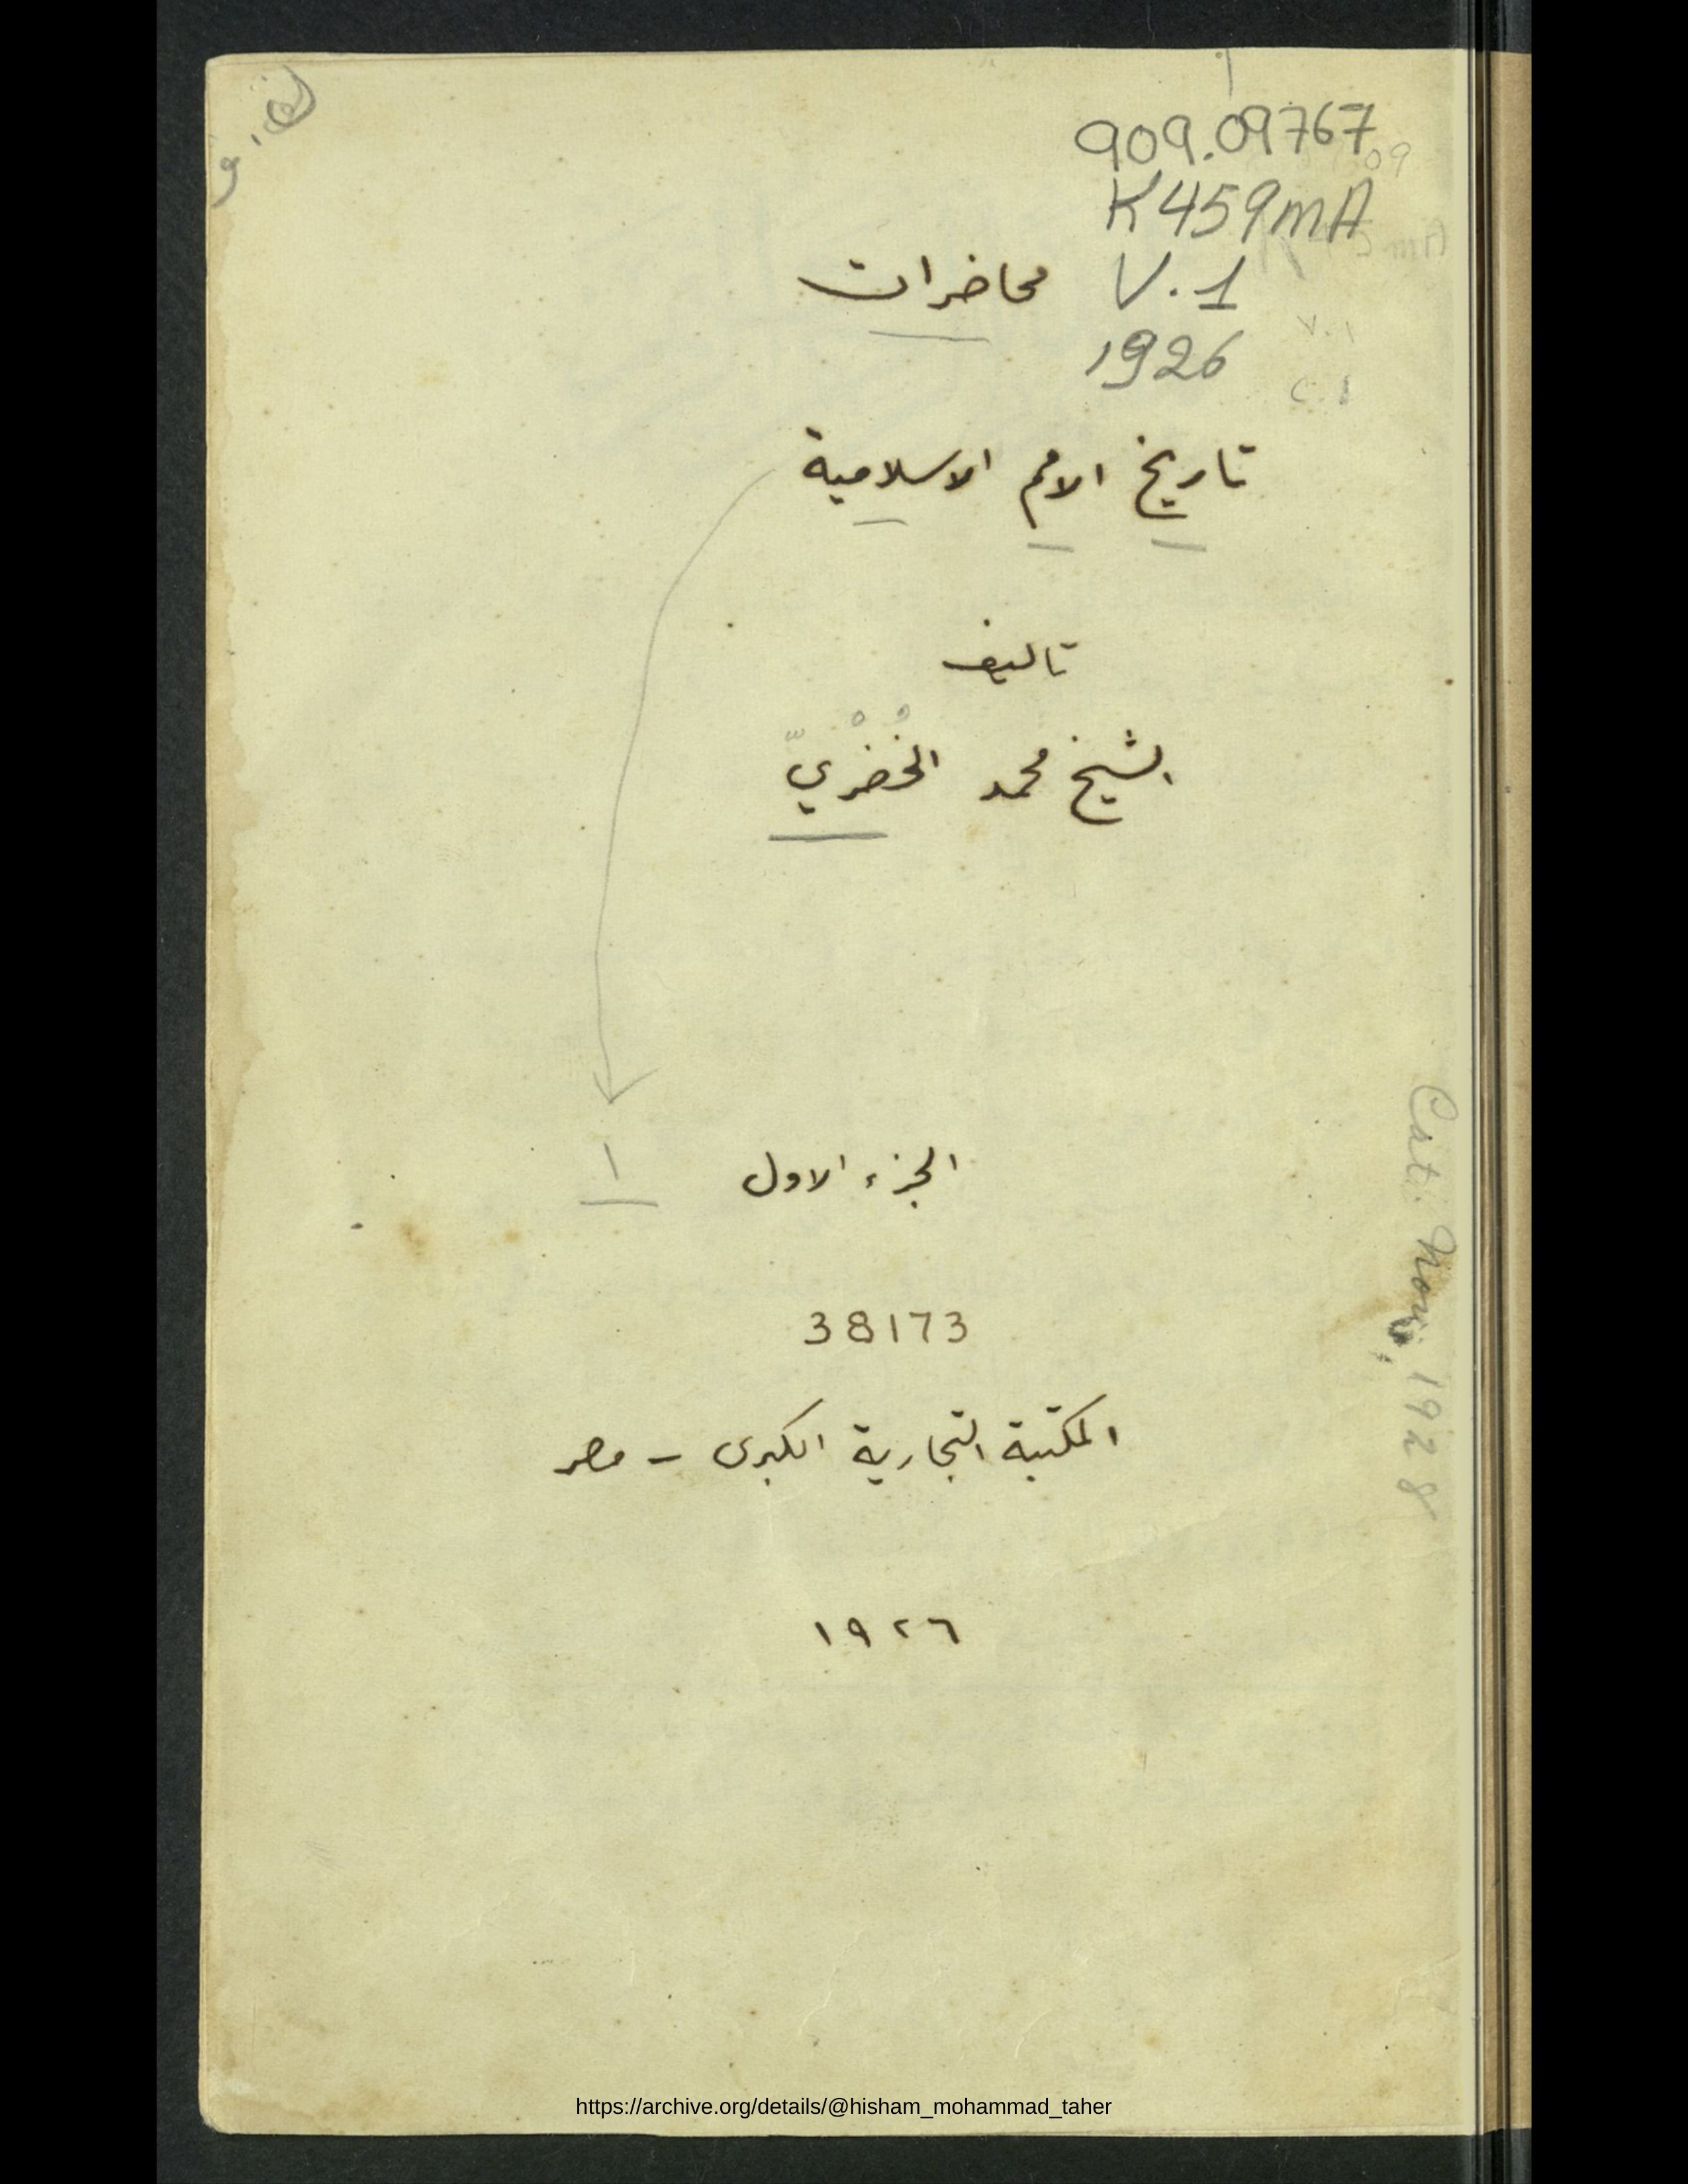 909.09767
K459mA
محاضرات V.1
1926
تاريخ الامم الاسلامية
تاليف
الشيخ محمد الخُضْريّ
الجزء الاول ١
38173
المكتبة التجارية الكبرى - مصر
١٩٢٦
Cat. Nov. 1928
https://archive.org/details/@hisham_mohammad_taher